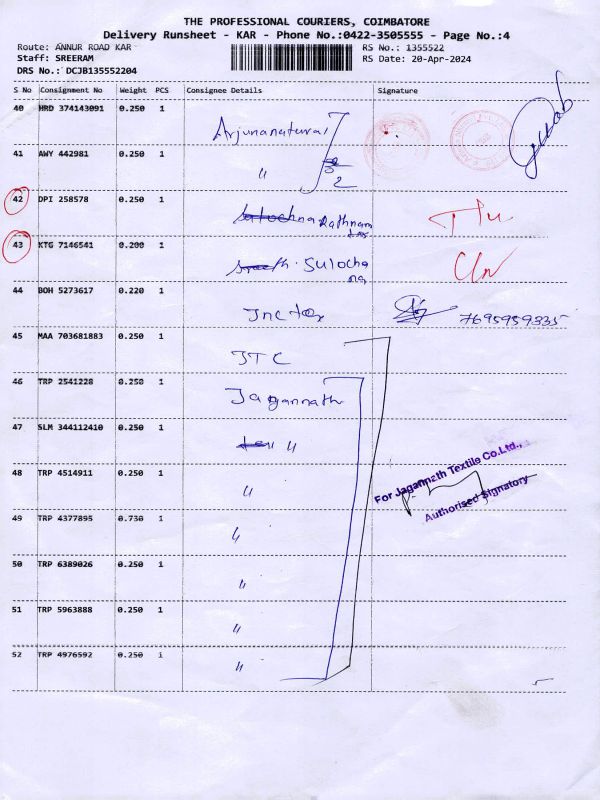 THE PROFESSIONAL COURIERS, COIMBATORE
Delivery Runsheet - KAR - Phone No.:0422-3505555 - Page No.:4
Route: ANNUR ROAD KAR
RS No.: 1355522
Staff: SREERAM
RS Date: 20-Apr-2024
DRS No.: DCJB135552204
S No Consignment No Weight PCS Consignee Details Signature
40 HRD 374143091 0.250 1 Arjunanatural
41 AWY 442981 0.250 1 " 2
42 DPI 258578 0.250 1 Rathnam
43 KTG 7146541 0.200 1 Sulochana
44 BOH 5273617 0.220 1 7695959335
45 MAA 703681883 0.250 1 JTC
46 TRP 2541228 0.250 1 Jagannath
47 SLM 344112410 0.250 1 "
48 TRP 4514911 0.250 1 "
For Jagannath Textile Co.Ltd.,
Authorised Signatory
49 TRP 4377895 0.730 1 "
50 TRP 6389026 0.250 1 "
51 TRP 5963888 0.250 1 "
52 TRP 4976592 0.250 1 "